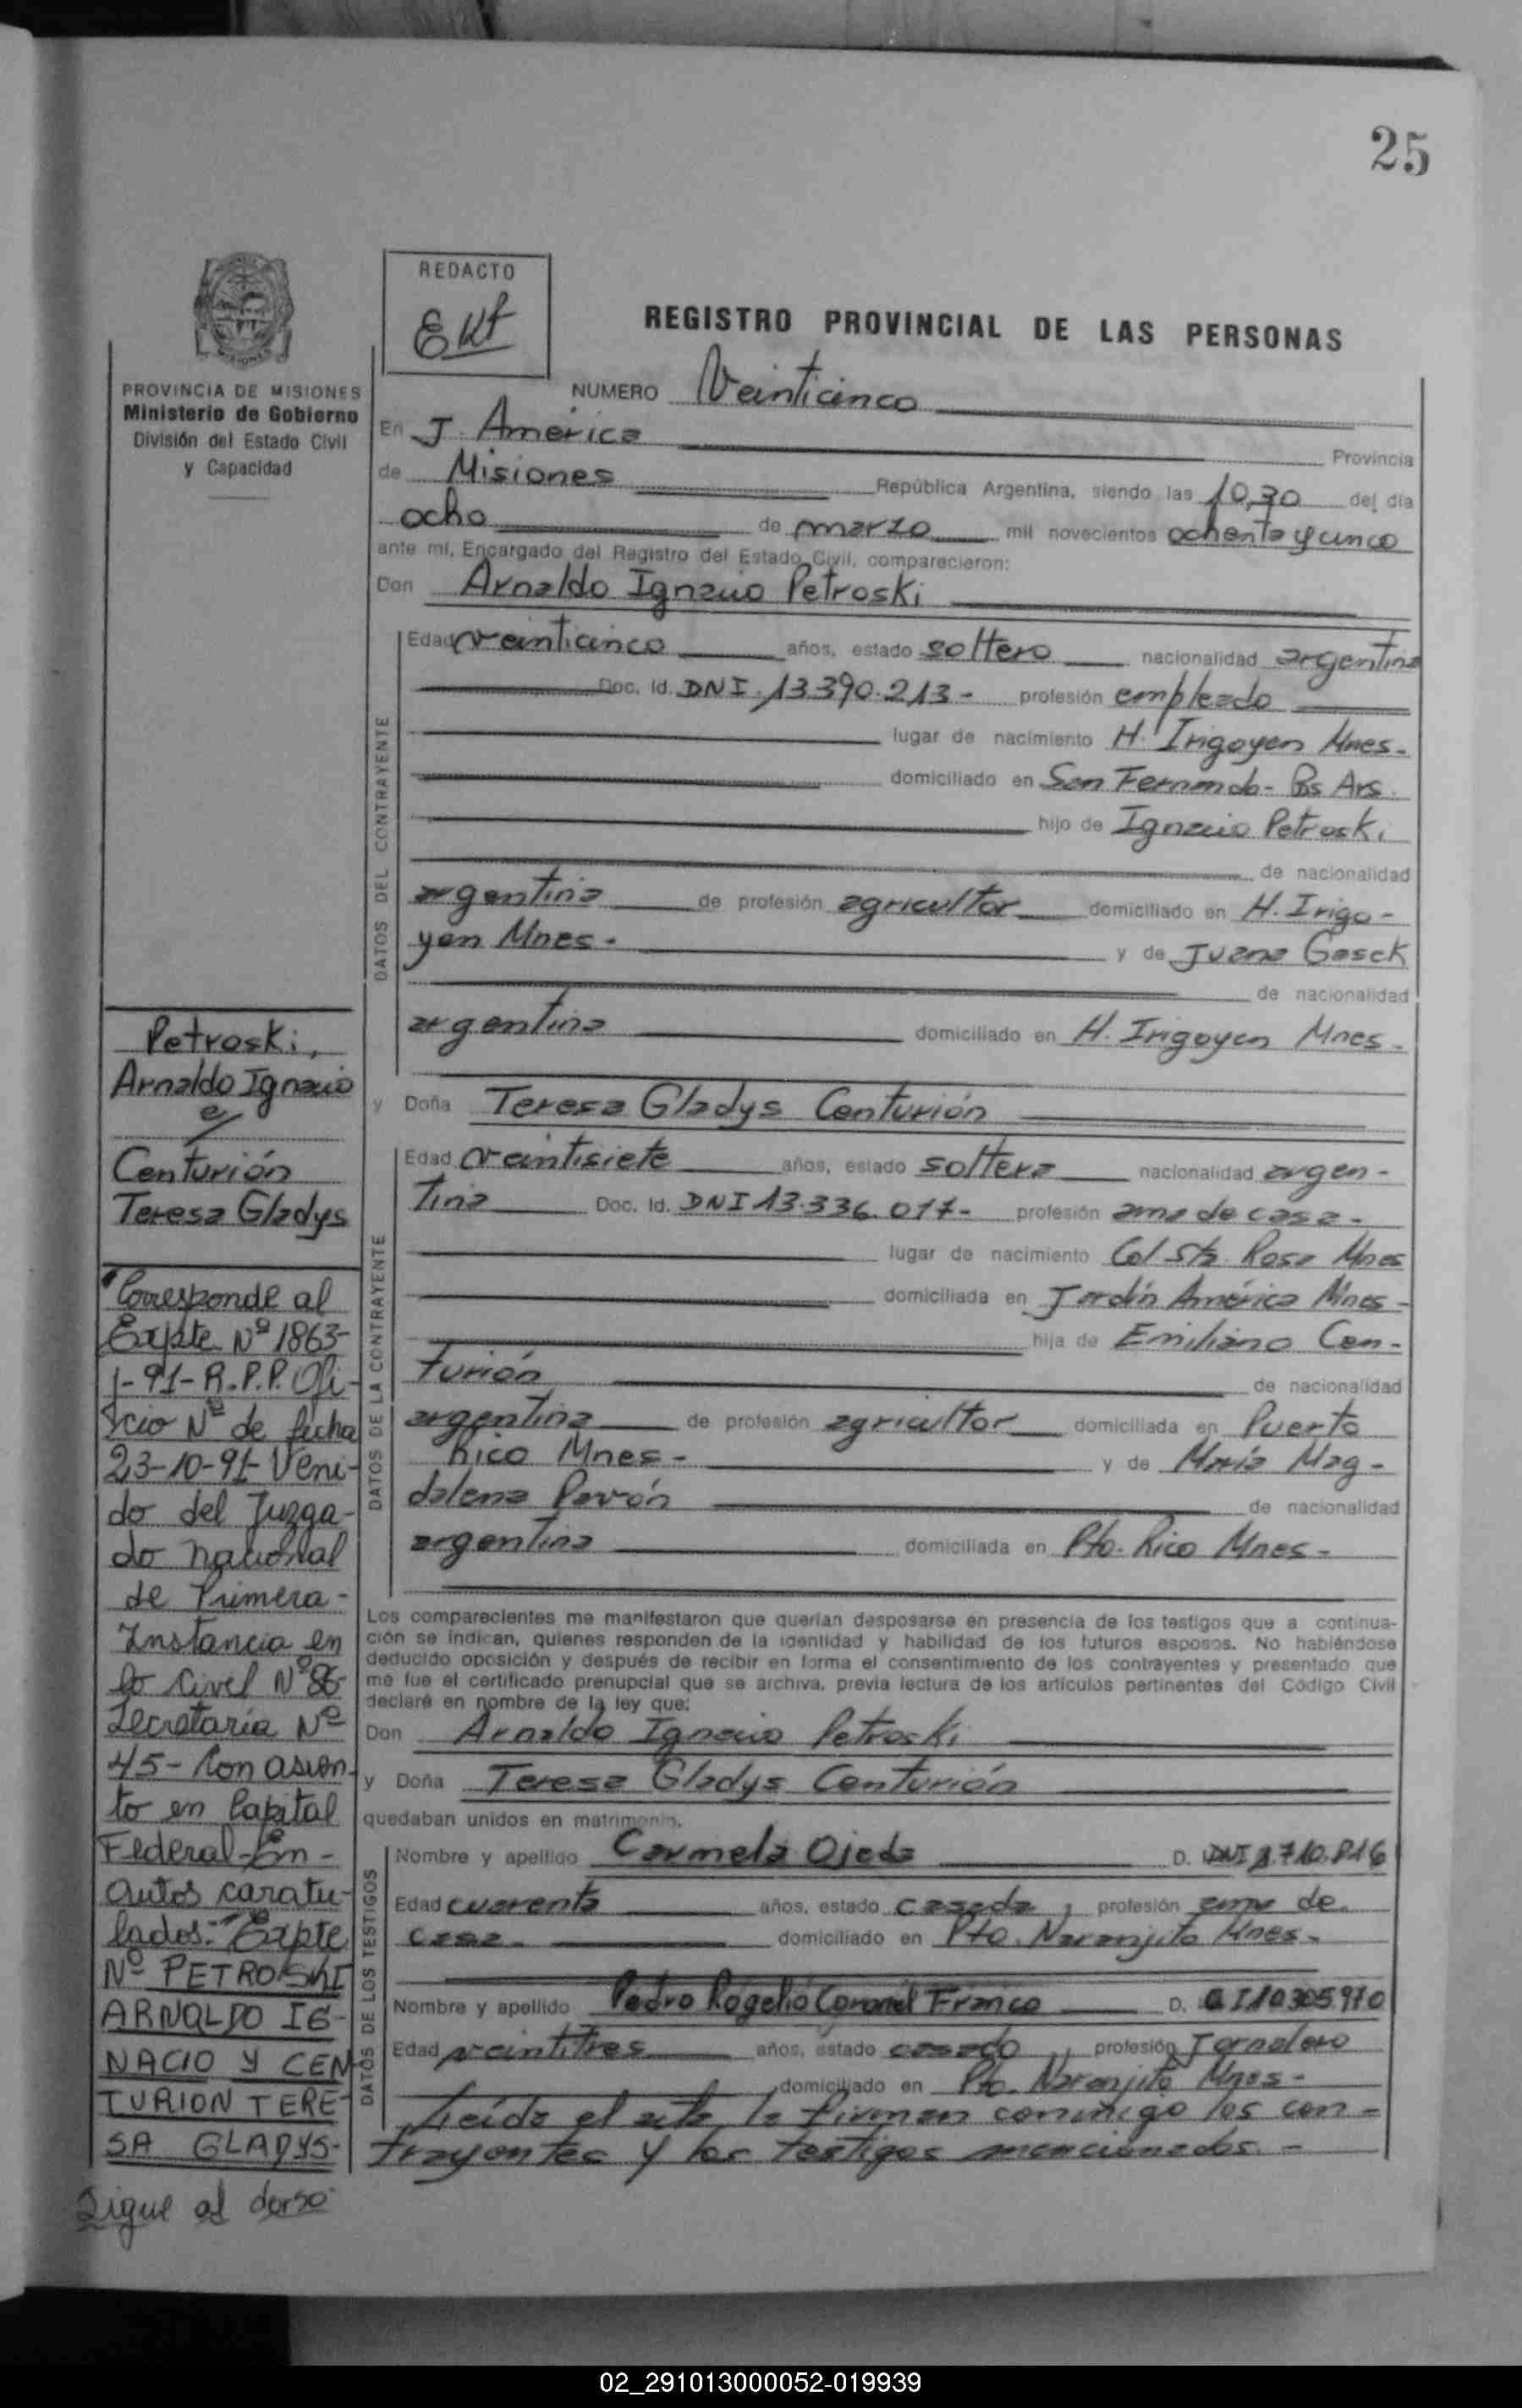 25
REDACTO
REGISTRO PROVINCIAL DE LAS PERSONAS
PROVINCIA DE MISIONES
Ministerio de Gobierno
División del Estado Civil
y Capacidad
NUMERO Veinticinco
En J. América Provincia
de Misiones República Argentina, siendo las 10,30 del día
ocho de marzo mil novecientos ochenta y cinco
ante mi, Encargado del Registro del Estado Civil, comparecieron:
Don Arnaldo Ignacio Petroski
DATOS DEL CONTRAYENTE
Edad veinticinco años, estado soltero nacionalidad argentina
Doc. Id. DNI. 13.390.213- profesión empleado
lugar de nacimiento H. Irigoyen Mnes-
domiciliado en San Fernando- Bs Ars.
hijo de Ignacio Petroski
de nacionalidad
argentina de profesión agricultor domiciliado en H. Irigo-
yen Mnes- y de Juana Gasck
de nacionalidad
argentina domiciliado en H. Irigoyen Mnes-
y Doña Teresa Gladys Centurión
DATOS DE LA CONTRAYENTE
Edad veintisiete años, estado soltera nacionalidad argen-
tina Doc. Id. DNI 13.336.017- profesión ama de casa-
lugar de nacimiento Col Sta. Rosa Mnes
domiciliada en Jardín América Mnes-
hija de Emiliano Cen-
turión de nacionalidad
argentina de profesión agricultor domiciliada en Puerto
Rico Mnes- y de María Mag-
dalena Pavón de nacionalidad
argentina domiciliada en Pto. Rico Mnes-
Los comparecientes me manifestaron que querían desposarse en presencia de los testigos que a continua-
ción se indican, quienes responden de la identidad y habilidad de los futuros esposos. No habiéndose
deducido oposición y después de recibir en forma el consentimiento de los contrayentes y presentado que
me fue el certificado prenupcial que se archiva, previa lectura de los artículos pertinentes del Código Civil
declaré en nombre de la ley que:
Don Arnaldo Ignacio Petroski
y Doña Teresa Gladys Centurión
quedaban unidos en matrimonio.
DATOS DE LOS TESTIGOS
Nombre y apellido Carmela Ojeda D. DNI
Edad cuarenta años, estado casada, profesión ama de
casa- domiciliado en Pto. Naranjito Mnes-
Nombre y apellido Pedro Rogelio Coronel Franco D. CI 10305970
Edad veintitres años, estado casado, profesión Jornalero
domiciliado en Pto. Naranjito Mnes-
Leída el acta la firman conmigo los con-
trayentes y los testigos mencionados.-
Petroski,
Arnaldo Ignacio
e/
Centurión
Teresa Gladys
Corresponde al
Expte. Nº 1863-
1-91-R.P.P. Ofi-
cio Nº de fecha
23-10-91- Veni-
do del Juzga-
do Nacional
de Primera-
Instancia en
lo Civel Nº 86-
Secretaría Nº
45- Con asien-
to en Capital
Federal- En-
autos caratu-
lados:- "Expte
Nº PETROSKI
ARNALDO IG-
NACIO Y CEN
TURION TERE-
SA GLADYS-
Sigue al dorso
02_291013000052-019939